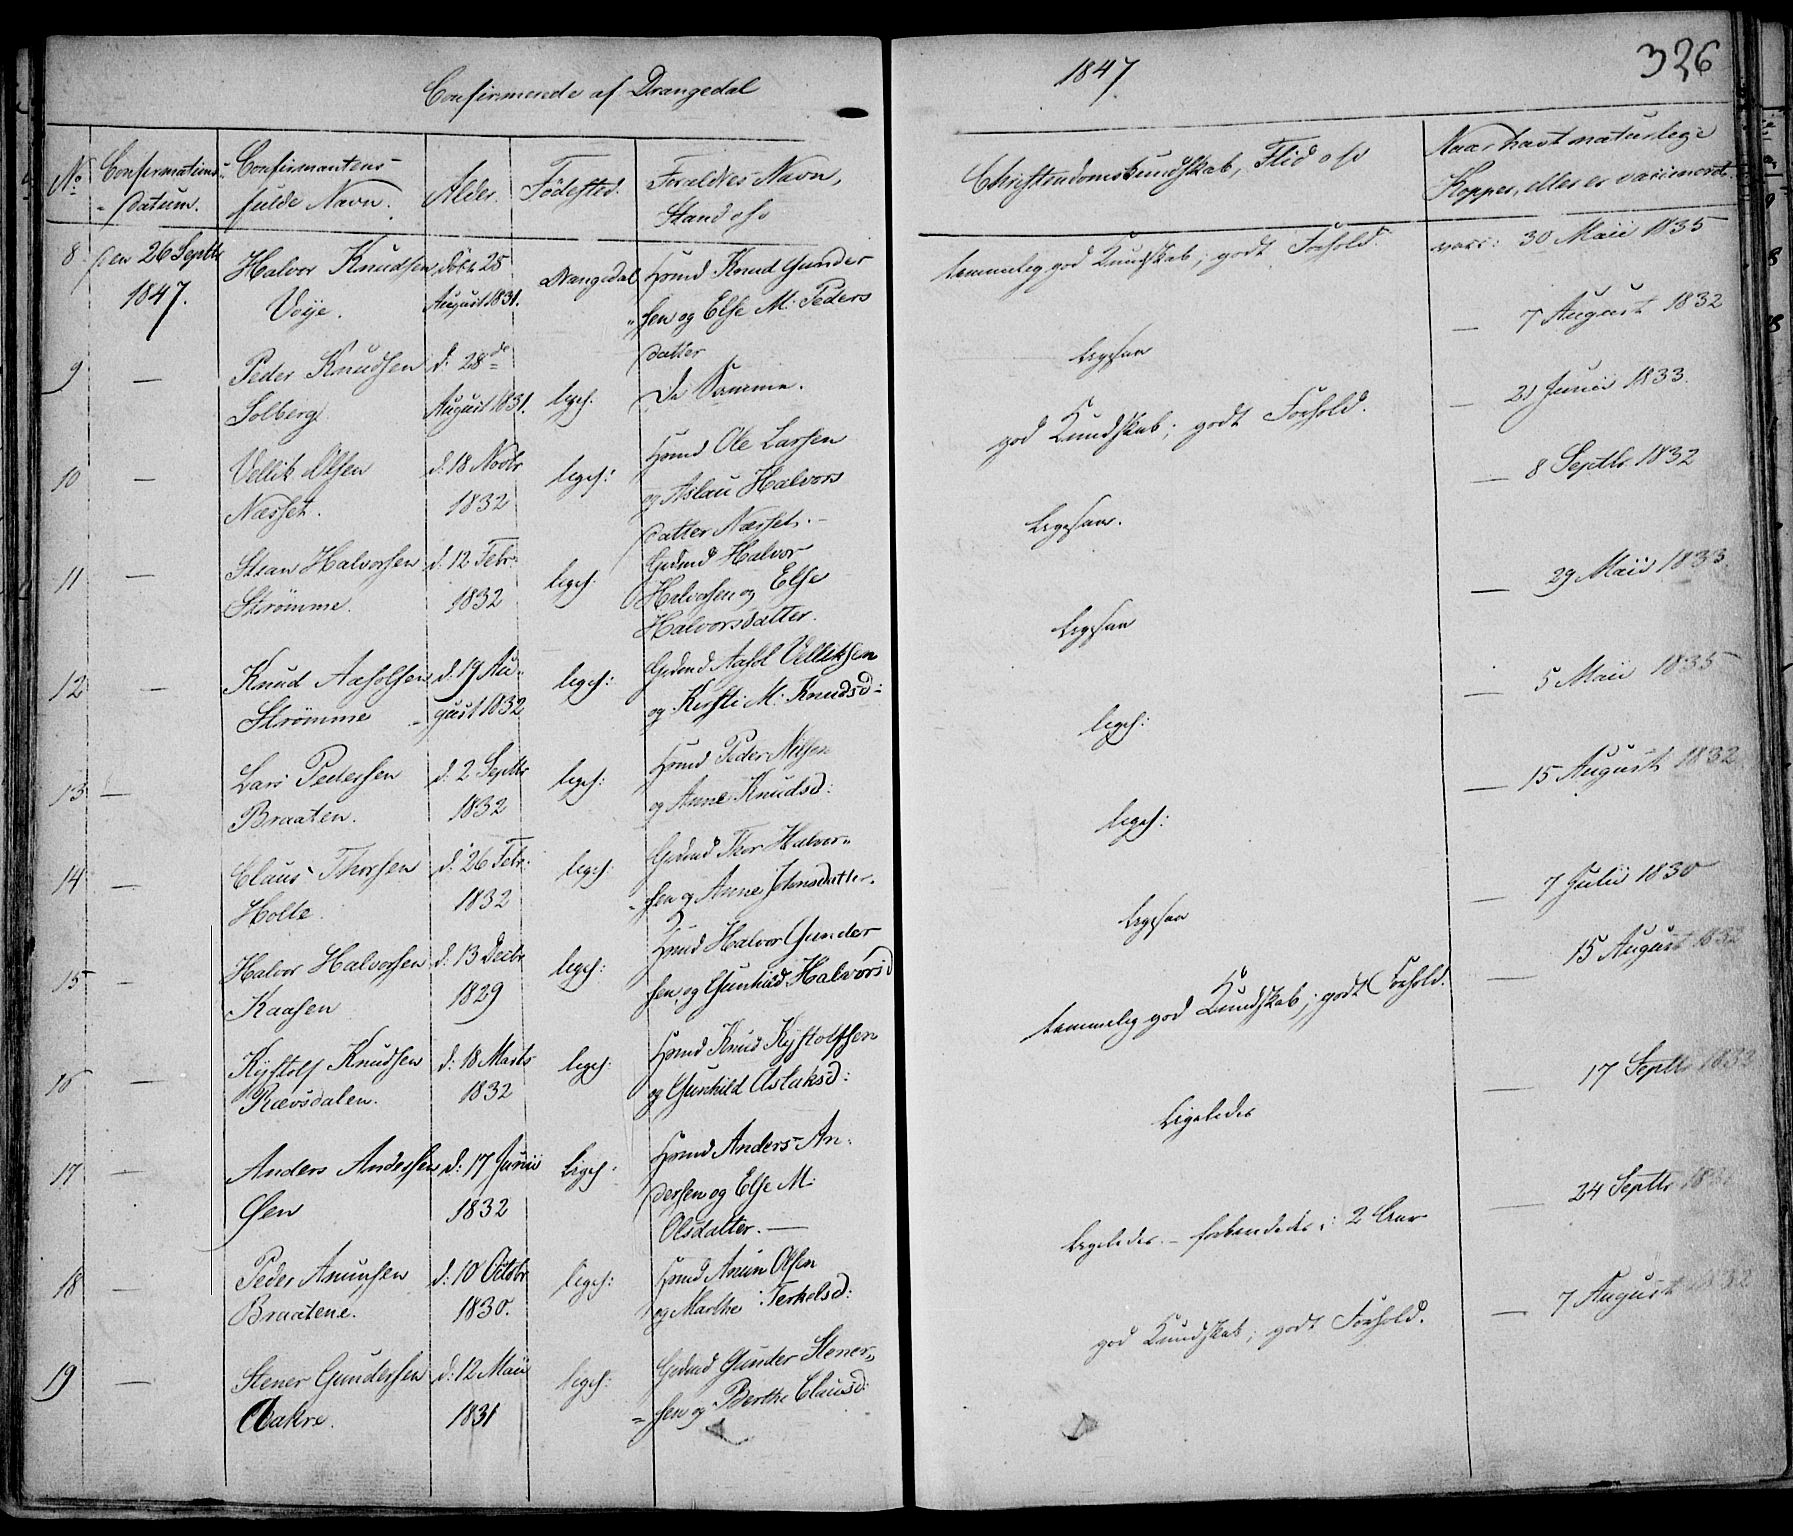 Confirmerede af Drangedal
1847
326
No
Confirmations-
Datum.
Confirmantens
fulde Navn.
Alder.
Fødested.
Forældres Navn,
Stand osv
Christendomskundskab, Flid osv
Naar havt naturlige
Kopper, eller er vaccineret.
8 den 26 Septbr Halvor Knudsen døbt 25 Drangedal Hmd Knud Gunder
1847. Voje. August 1831. sen og Else M. Peders
datter
tammelig god Kundskab; godt Forhold. vacc: 30 Maii 1835
9 — Peder Knudsen d. 28de
Solberg August 1831. liges. De Samme.
Ligesaa — 7 August 1832
10 — Vellik Olsen d. 18 Novbr liges: Hmd Ole Larsen
Næsset. 1832 og Aslau Halvors
datter Næsset. —
god Kundskab; godt Forhold. — 21 Junii 1833.
11 — Stian Halvorsen d. 12 Febr. liges: Gdmd Halvor
Strømme. 1832 Halvorsen og Else
Halvorsdatter.
Ligesaa. — 8 Septbr 1832
12 — Knud Aasolsen d. 19 Au- liges: Gdmd Aasol Velliksen
Strømme gust 1832 og Kirsti M. Knudsd:
Ligesaa — 29 Maii 1833.
13 — Lars Pedersen d. 2 Septbr liges: Hmd Peder Nilsen
Braaten. 1832 og Anne Knudsd:
liges: — 5 Maii 1835
14 — Claus Thorsen d. 26 Febr. liges: Gdmd Thor Halvor-
Holte. 1832 sen og Anne Johnsdatter.
liges: — 15 August 1832
15 — Halvor Halvorsen d. 13 Decbr liges: Hmd Halvor Gunder
Kaasen 1829 sen og Gunhild Halvorsd
Ligesaa — 7 Julii 1830
16 — Kystolf Knudsen d: 18 Marts liges: Hmd Knud Kystolfsen
Rævsdalen. 1832 og Gunhild Aslaksd:
tammelig god Kundskab; godt Forhold. — 15 August 1832
17 — Anders Andersen d: 17 Junii liges: Hmd Anders An-
Øen 1832 dersen og Else M:
Olsdatter. —
Ligeledes — 17 Septbr 1832
18 — Peder Anunsen d: 10 Octobr liges: Hmd Anun Olsen
Braatene. 1830. og Marthe Terkelsd:
Ligeledes. – forberedet i 2 Aar — 24 Septbr
19 — Stener Gundersen d: 12 Maii liges: Gdmd Gunder Stener-
Aakre. 1831 sen og Berthe Clausd:
god Kundskab; godt Forhold. — 7 August 1832